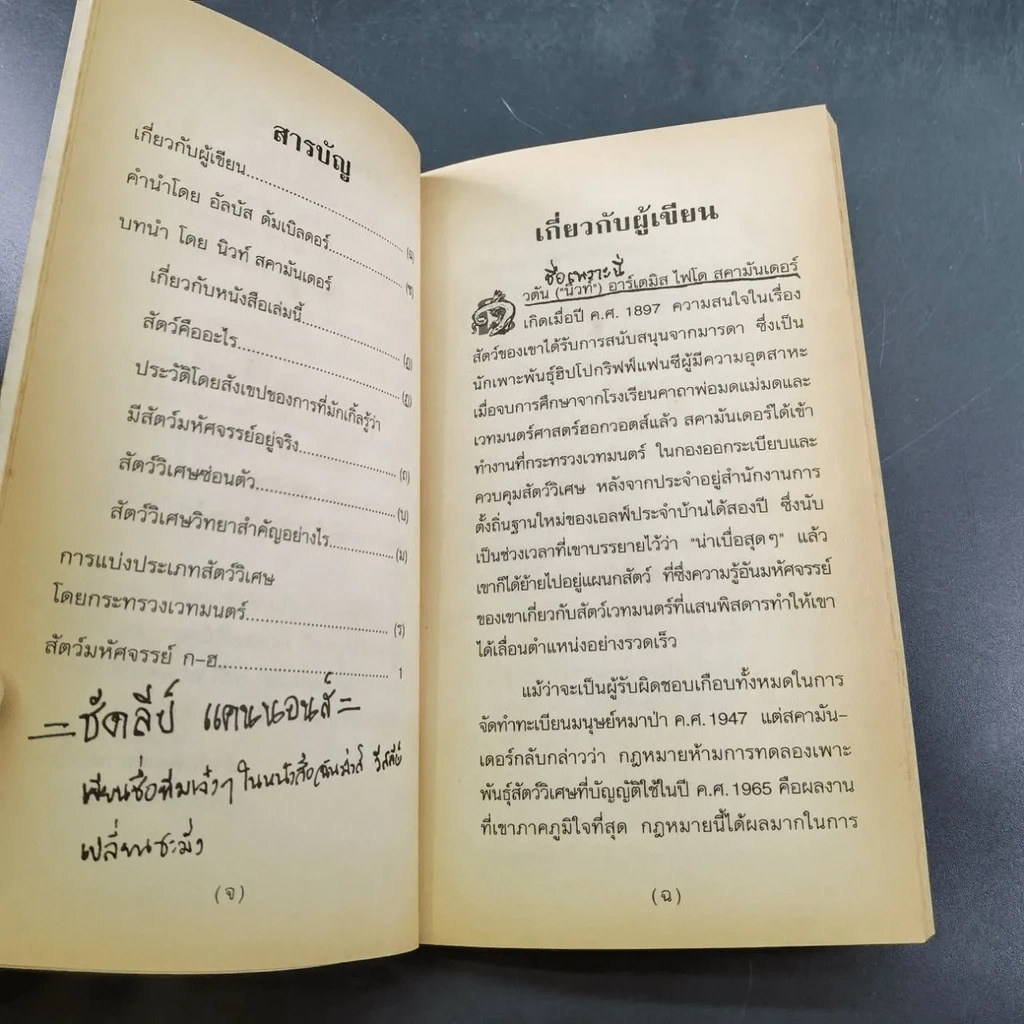 สารบัญ
เกี่ยวกับผู้เขียน............(ฉ)
คำนำโดย อัลบัส ดัมเบิลดอร์............(ซ)
บทนำ โดย นิวท์ สคามันเดอร์
เกี่ยวกับหนังสือเล่มนี้............(ฎ)
สัตว์คืออะไร............(ฏ)
ประวัติโดยสังเขปของการที่มักเกิ้ลรู้ว่า
มีสัตว์มหัศจรรย์อยู่จริง............(ถ)
สัตว์วิเศษซ่อนตัว............(บ)
สัตว์วิเศษวิทยาสำคัญอย่างไร............(ม)
การแบ่งประเภทสัตว์วิเศษ
โดยกระทรวงเวทมนตร์............(ร)
สัตว์มหัศจรรย์ ก-ฮ............1
=ชัดลีย์ แคนนอนส์=
เขียนชื่อทีมเจ๋งๆ ในหนังสือฉัน
เปลี่ยนซะมั่ง
(จ)
เกี่ยวกับผู้เขียน
ชื่อเพราะนี่
นิวตัน ("นิวท์") อาร์เตมิส ไฟโด สคามันเดอร์
เกิดเมื่อปี ค.ศ. 1897 ความสนใจในเรื่อง
สัตว์ของเขาได้รับการสนับสนุนจากมารดา ซึ่งเป็น
นักเพาะพันธุ์ฮิปโปกริฟฟ์แฟนซีผู้มีความอุตสาหะ
เมื่อจบการศึกษาจากโรงเรียนคาถาพ่อมดแม่มดและ
เวทมนตร์ศาสตร์ฮอกวอตส์แล้ว สคามันเดอร์ได้เข้า
ทำงานที่กระทรวงเวทมนตร์ ในกองออกระเบียบและ
ควบคุมสัตว์วิเศษ หลังจากประจำอยู่สำนักงานการ
ตั้งถิ่นฐานใหม่ของเอลฟ์ประจำบ้านได้สองปี ซึ่งนับ
เป็นช่วงเวลาที่เขาบรรยายไว้ว่า "น่าเบื่อสุดๆ" แล้ว
เขาก็ได้ย้ายไปอยู่แผนกสัตว์ ที่ซึ่งความรู้อันมหัศจรรย์
ของเขาเกี่ยวกับสัตว์เวทมนตร์ที่แสนพิสดารทำให้เขา
ได้เลื่อนตำแหน่งอย่างรวดเร็ว
แม้ว่าจะเป็นผู้รับผิดชอบเกือบทั้งหมดในการ
จัดทำทะเบียนมนุษย์หมาป่า ค.ศ. 1947 แต่สคามัน-
เดอร์กลับกล่าวว่า กฎหมายห้ามการทดลองเพาะ
พันธุ์สัตว์วิเศษที่บัญญัติใช้ในปี ค.ศ. 1965 คือผลงาน
ที่เขาภาคภูมิใจที่สุด กฎหมายนี้ได้ผลมากในการ
(ฉ)